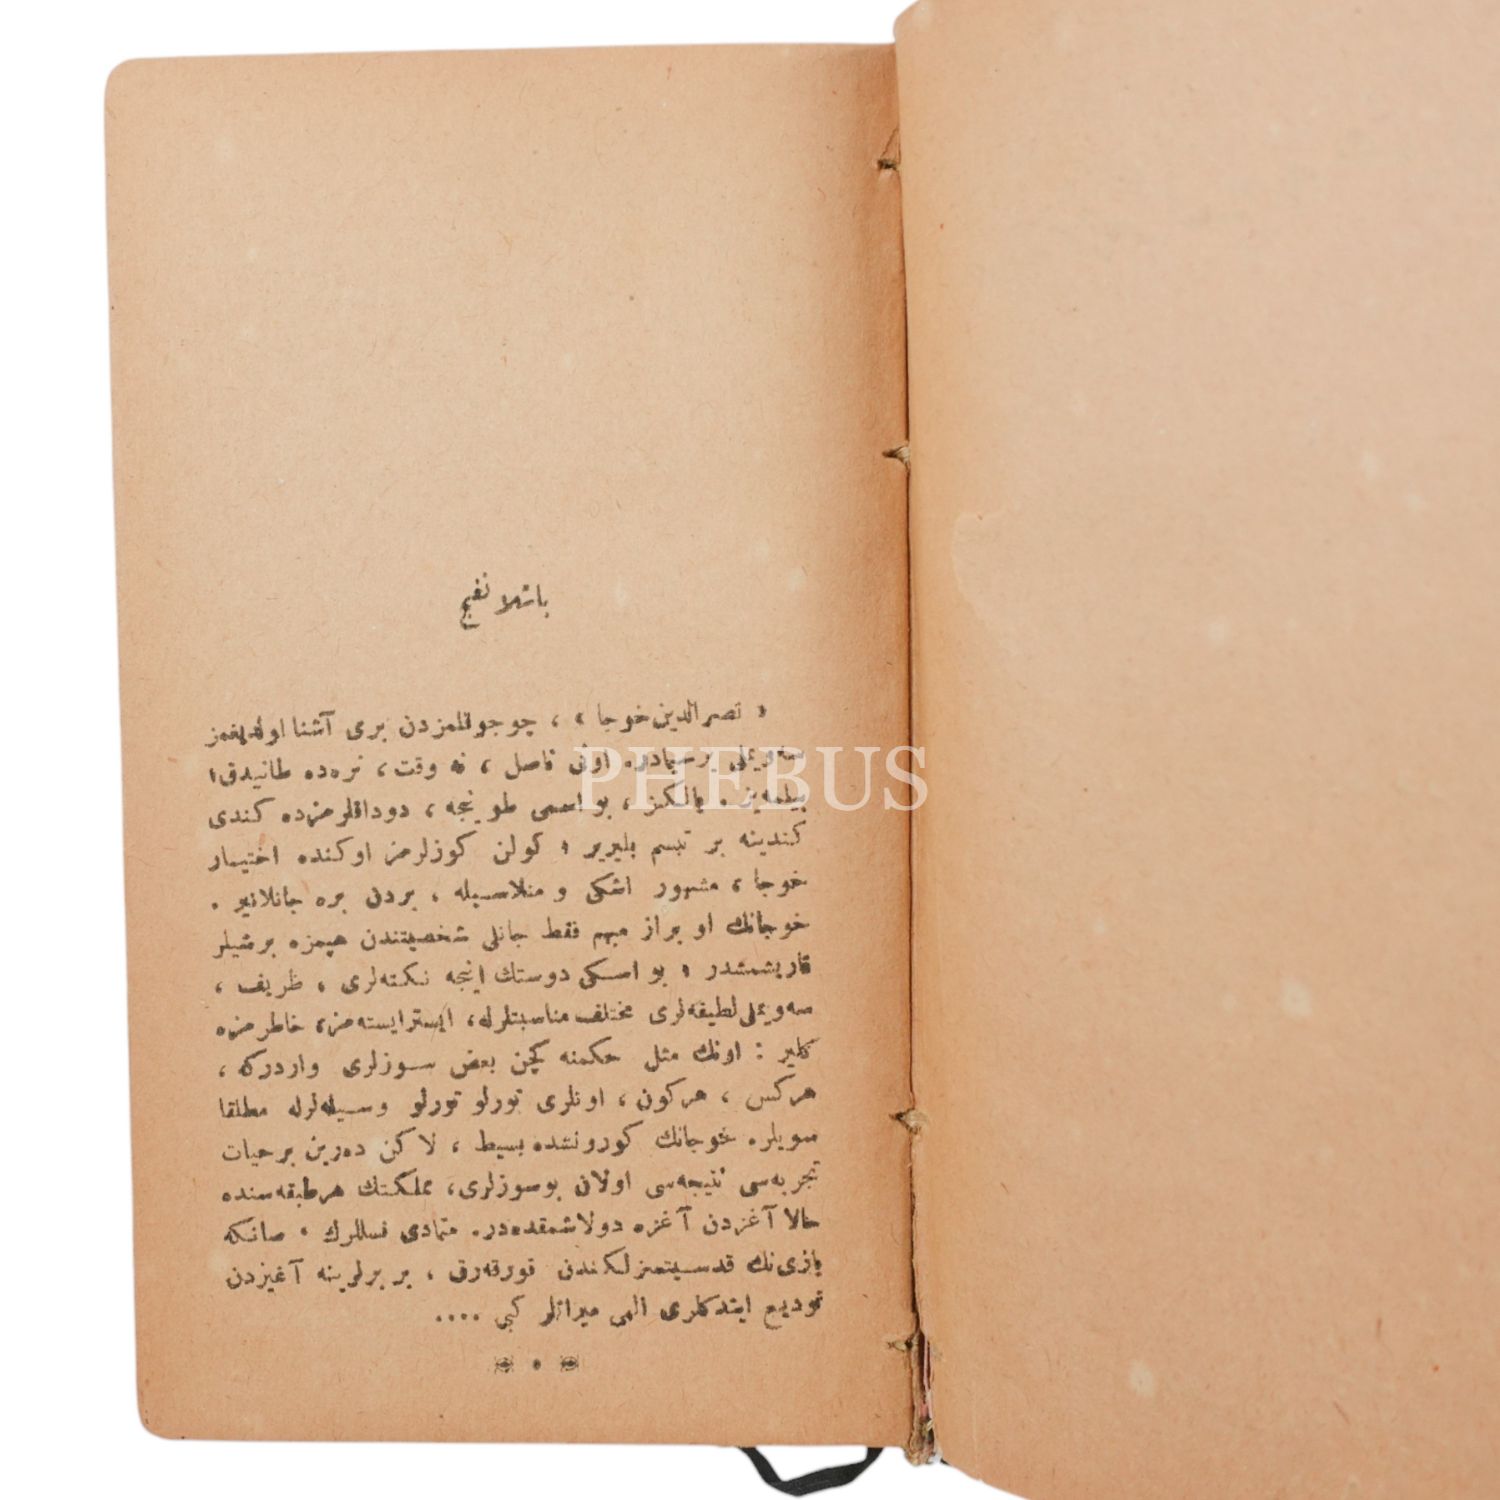 باشلانغیج
« نصرالدین خوجا » ، چوجوقلغمزدن بری آشنا اولدیغمز
سه‌ویملی برسیمادر. اونی ناصل ، نه وقت ، نره‌ده طانیدق؛
بیلمه‌یز . یالکز ، بو اسمی طوینجه ، دوداقلرمزده کندی
کندینه بر تبسم بلیریر ؛ کولن کوزلرمز اوکنده اختیار
خوجا ، مشهور اشکی و منلاسیله ، بردن بره جانلانیر .
خوجانك او براز مبهم فقط جانلی شخصیتندن هپمزه برشیلر
قاریشمشدر ؛ بو اسکی دوستك اینجه نکته‌لری ، ظریف ،
سه‌ویملی لطیفه‌لری مختلف مناسبتلرله، ایسترایسته‌مز، خاطرمزه
کلیر : اونك مثل حکمنه کچن بعض سوزلری واردرکه ،
هرکس ، هرکون ، اونلری تورلو تورلو وسیله‌لرله مطلقا
سویلر. خوجانك کورونشده بسیط ، لاکن ده‌رین برحیات
تجربه‌سی نتیجه‌سی اولان بوسوزلری، مملکتك هرطبقه‌سنده
حالا آغزدن آغزه دولاشمقده‌در. متمادی نسللرك ، صانکه
یازی‌نك قدسیتسزلکندن قورقه‌رق ، بر برلرینه آغیزدن
تودیع ایتدکلری الهی میراثلر کبی ....
PHEBUS